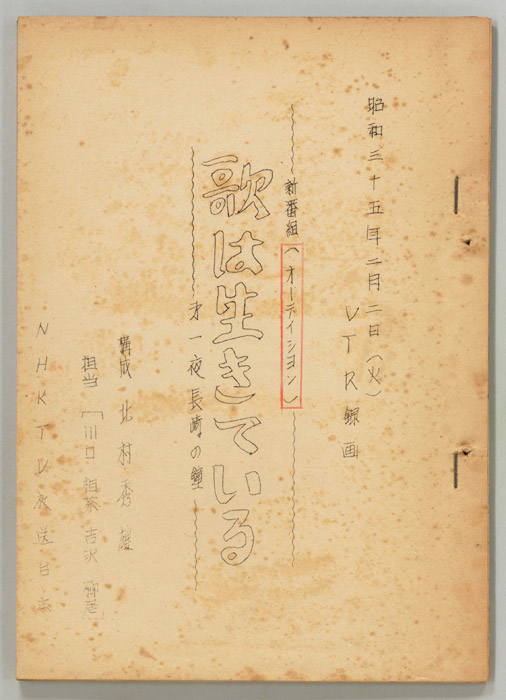 昭和三十五年二月二日(火)
VTR録画
新番組(オーディション)
歌は生きている
才一夜 長崎の鐘
構成 北村秀雄
担当 [川口 相茶 吉沢
NHKTV放送台本